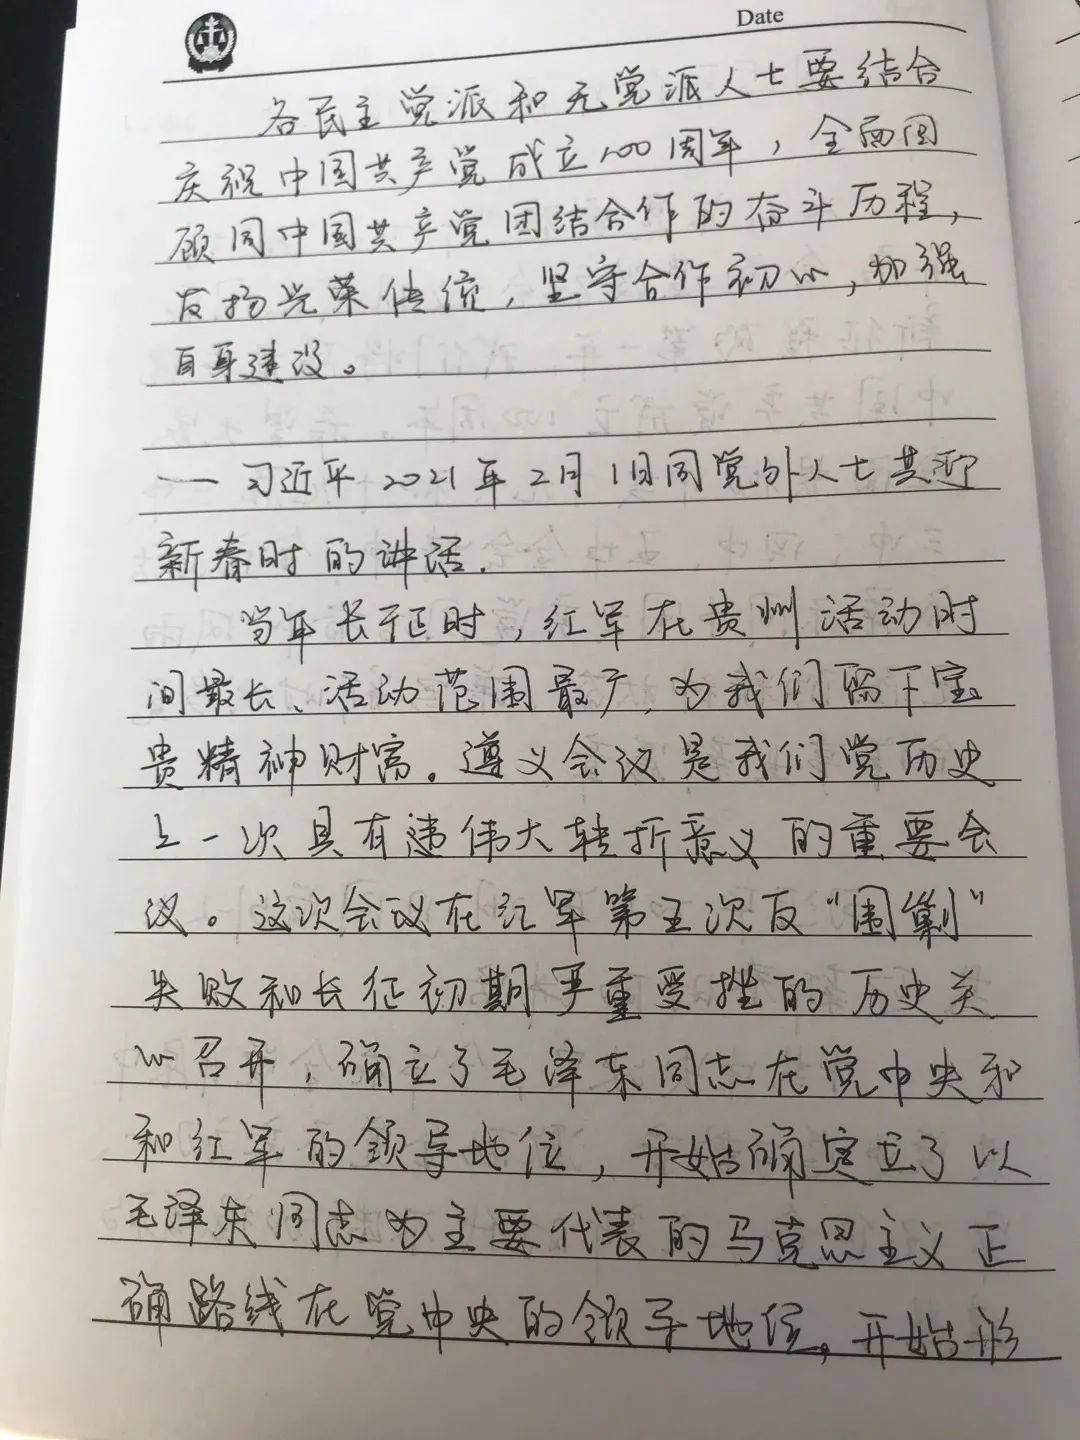 Date
各民主党派和无党派人士要结合
庆祝中国共产党成立100周年，全面回
顾同中国共产党团结合作的奋斗历程，
发扬光荣传统，坚守合作初心，加强
自身建设。
——习近平2021年2月1日同党外人士共迎
新春时的讲话.
当年长征时，红军在贵州活动时
间最长、活动范围最广，为我们留下宝
贵精神财富。遵义会议是我们党历史
上一次具有违伟大转折意义的重要会
议。这次会议在红军第五次反“围剿”
失败和长征初期严重受挫的历史关
心召开，确立了毛泽东同志在党中央和
和红军的领导地位，开始确定立了以
毛泽东同志为主要代表的马克思主义正
确路线在党中央的领导地位，开始形